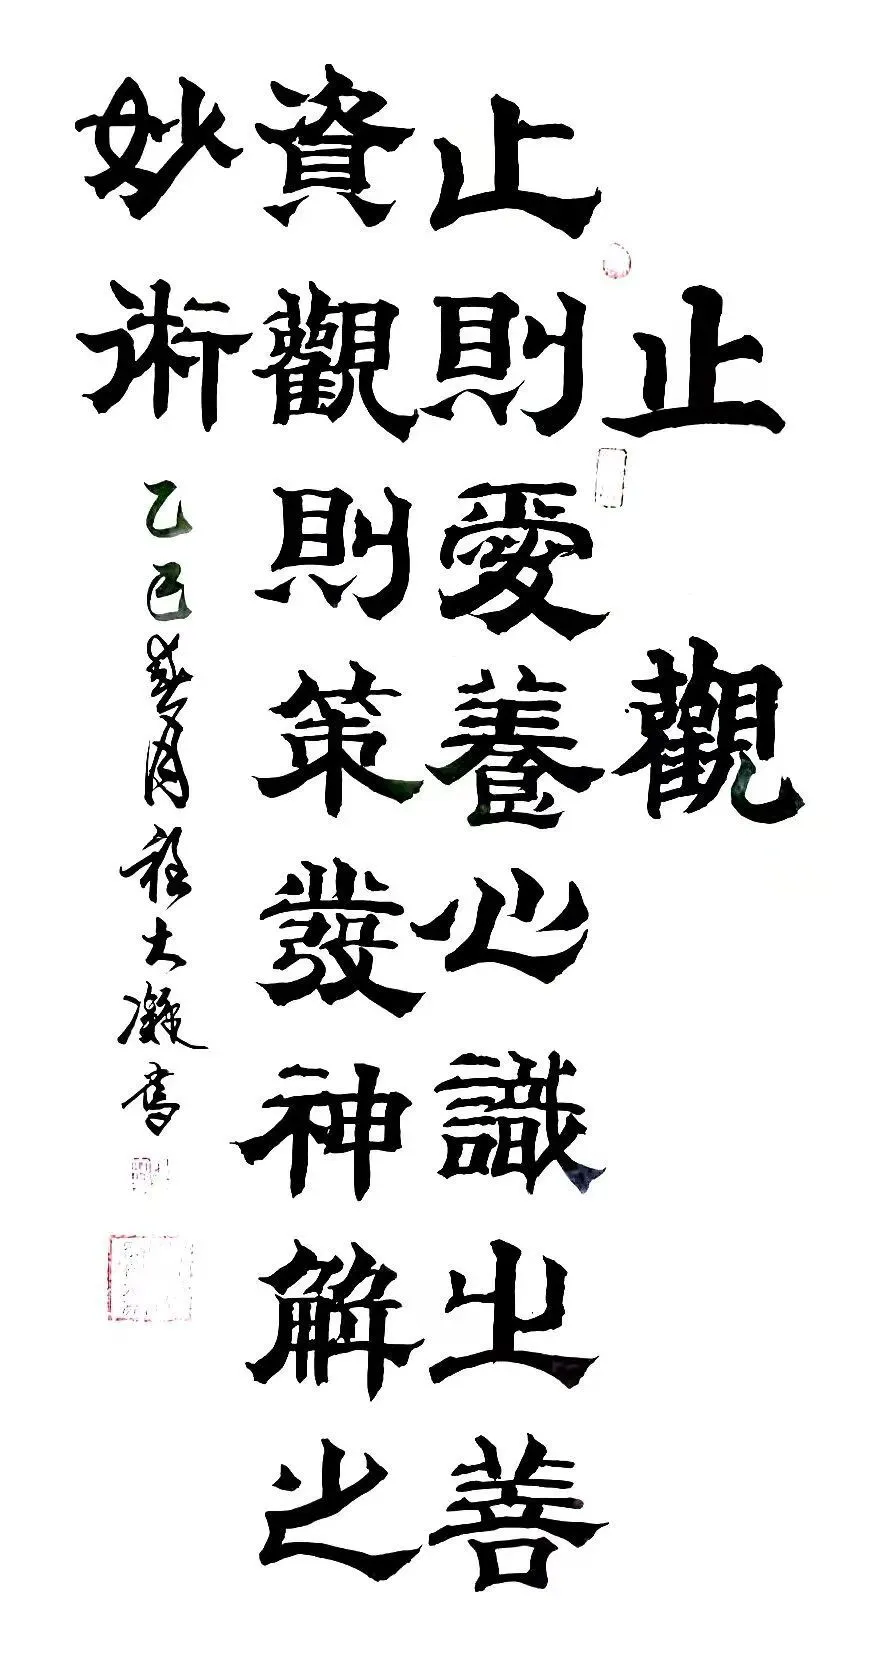 止觀
止則愛養心識之善
資觀則策發神解之
妙術
乙巳春月程大凝書